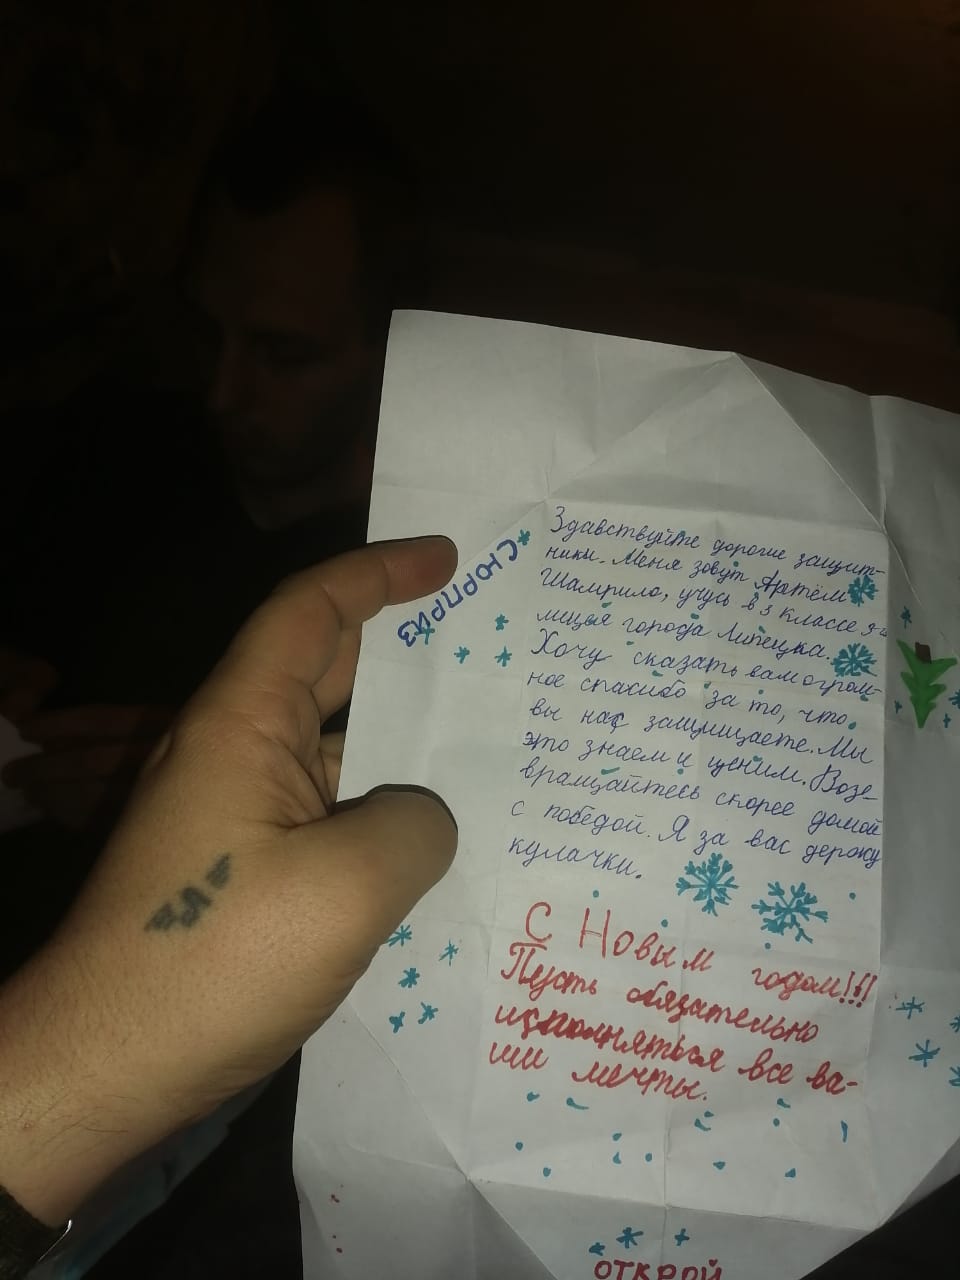 СЮРПРИЗ
Здавствуйте дорогие защит-
ники. Меня зовут Артём
Шамрило, учусь в 3 классе
лицея города Липецка.
Хочу сказать вам огром-
ное спасибо за то, что
вы нас защищаете. Мы
это знаем и ценим. Возв-
вращайтесь скорее домой
с победой. Я за вас держу
кулачки.
С Новым годом!!!
Пусть обязательно
исполняться все ва-
ши мечты.
ОТКРОЙ